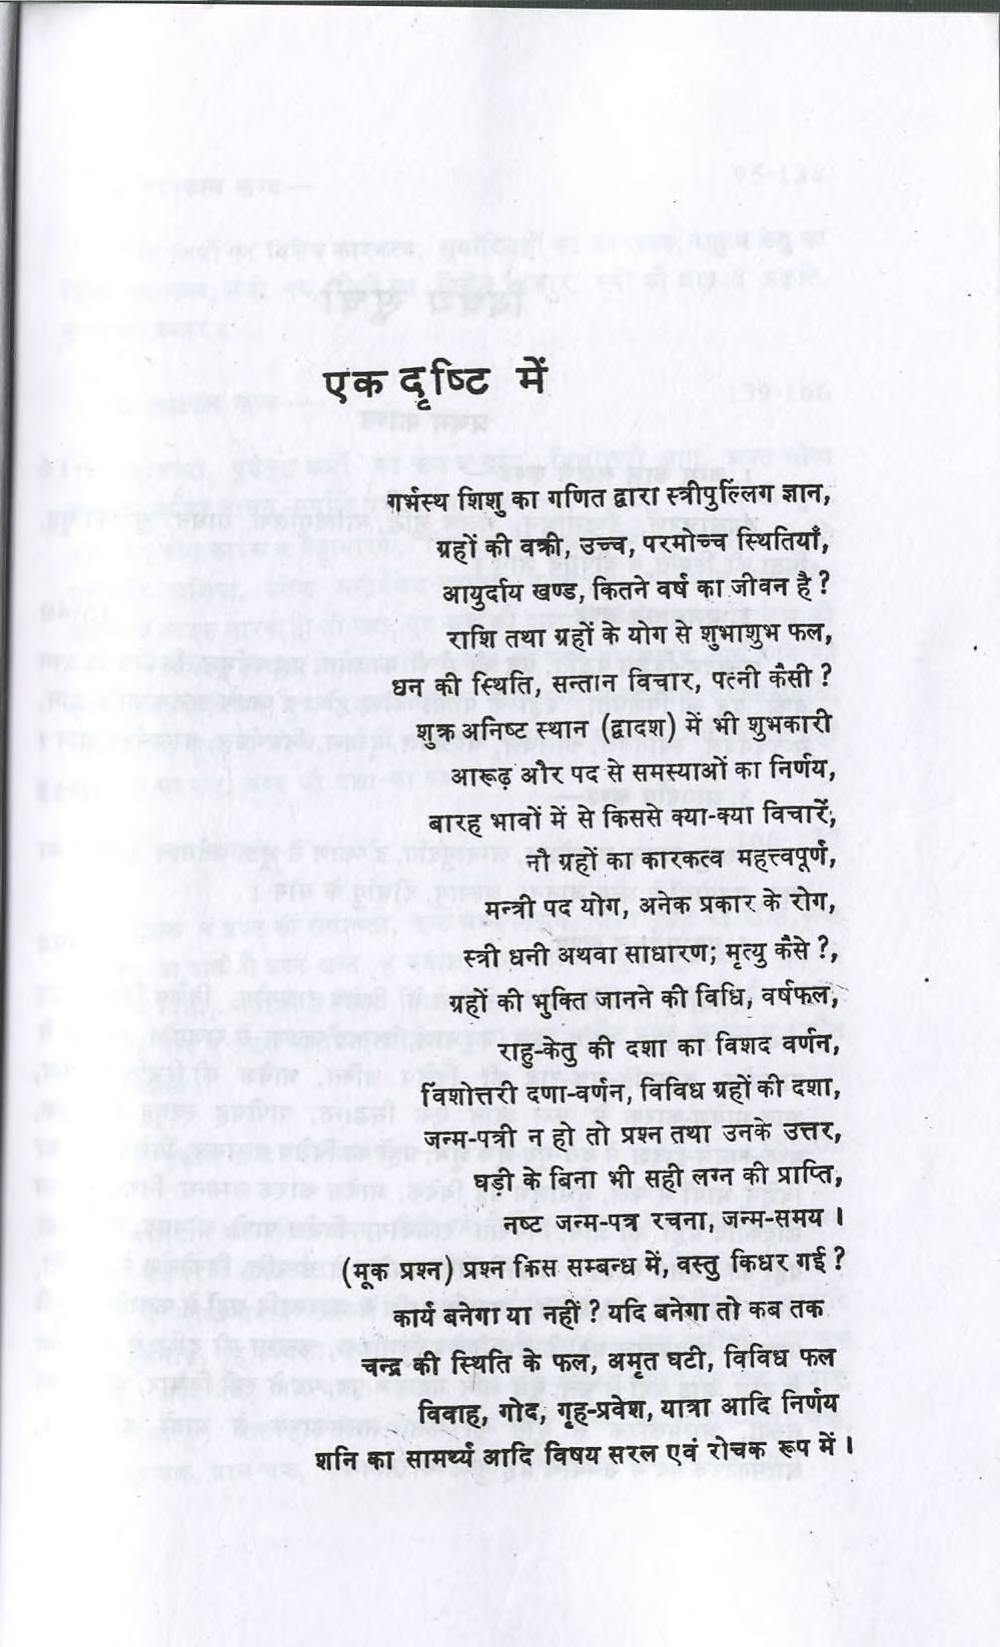 एक दृष्टि में
गर्भस्थ शिशु का गणित द्वारा स्त्रीपुल्लिग ज्ञान,
ग्रहों की वक्री, उच्च, परमोच्च स्थितियाँ,
आयुर्दाय खण्ड, कितने वर्ष का जीवन है ?
राशि तथा ग्रहों के योग से शुभाशुभ फल,
धन की स्थिति, सन्तान विचार, पत्नी कैसी ?
शुक्र अनिष्ट स्थान (द्वादश) में भी शुभकारी
आरूढ़ और पद से समस्याओं का निर्णय,
बारह भावों में से किससे क्या-क्या विचारें,
नौ ग्रहों का कारकत्व महत्त्वपूर्ण,
मन्त्री पद योग, अनेक प्रकार के रोग,
स्त्री धनी अथवा साधारण; मृत्यु कैसे ?,
ग्रहों की भुक्ति जानने की विधि, वर्षफल,
राहु-केतु की दशा का विशद वर्णन,
विंशोत्तरी दणा-वर्णन, विविध ग्रहों की दशा,
जन्म-पत्री न हो तो प्रश्न तथा उनके उत्तर,
घड़ी के बिना भी सही लग्न की प्राप्ति,
नष्ट जन्म-पत्र रचना, जन्म-समय ।
(मूक प्रश्न) प्रश्न किस सम्बन्ध में, वस्तु किधर गई ?
कार्य बनेगा या नहीं ? यदि बनेगा तो कब तक
चन्द्र की स्थिति के फल, अमृत घटी, विविध फल
विवाह, गोद, गृह-प्रवेश, यात्रा आदि निर्णय
शनि का सामर्थ्य आदि विषय सरल एवं रोचक रूप में ।